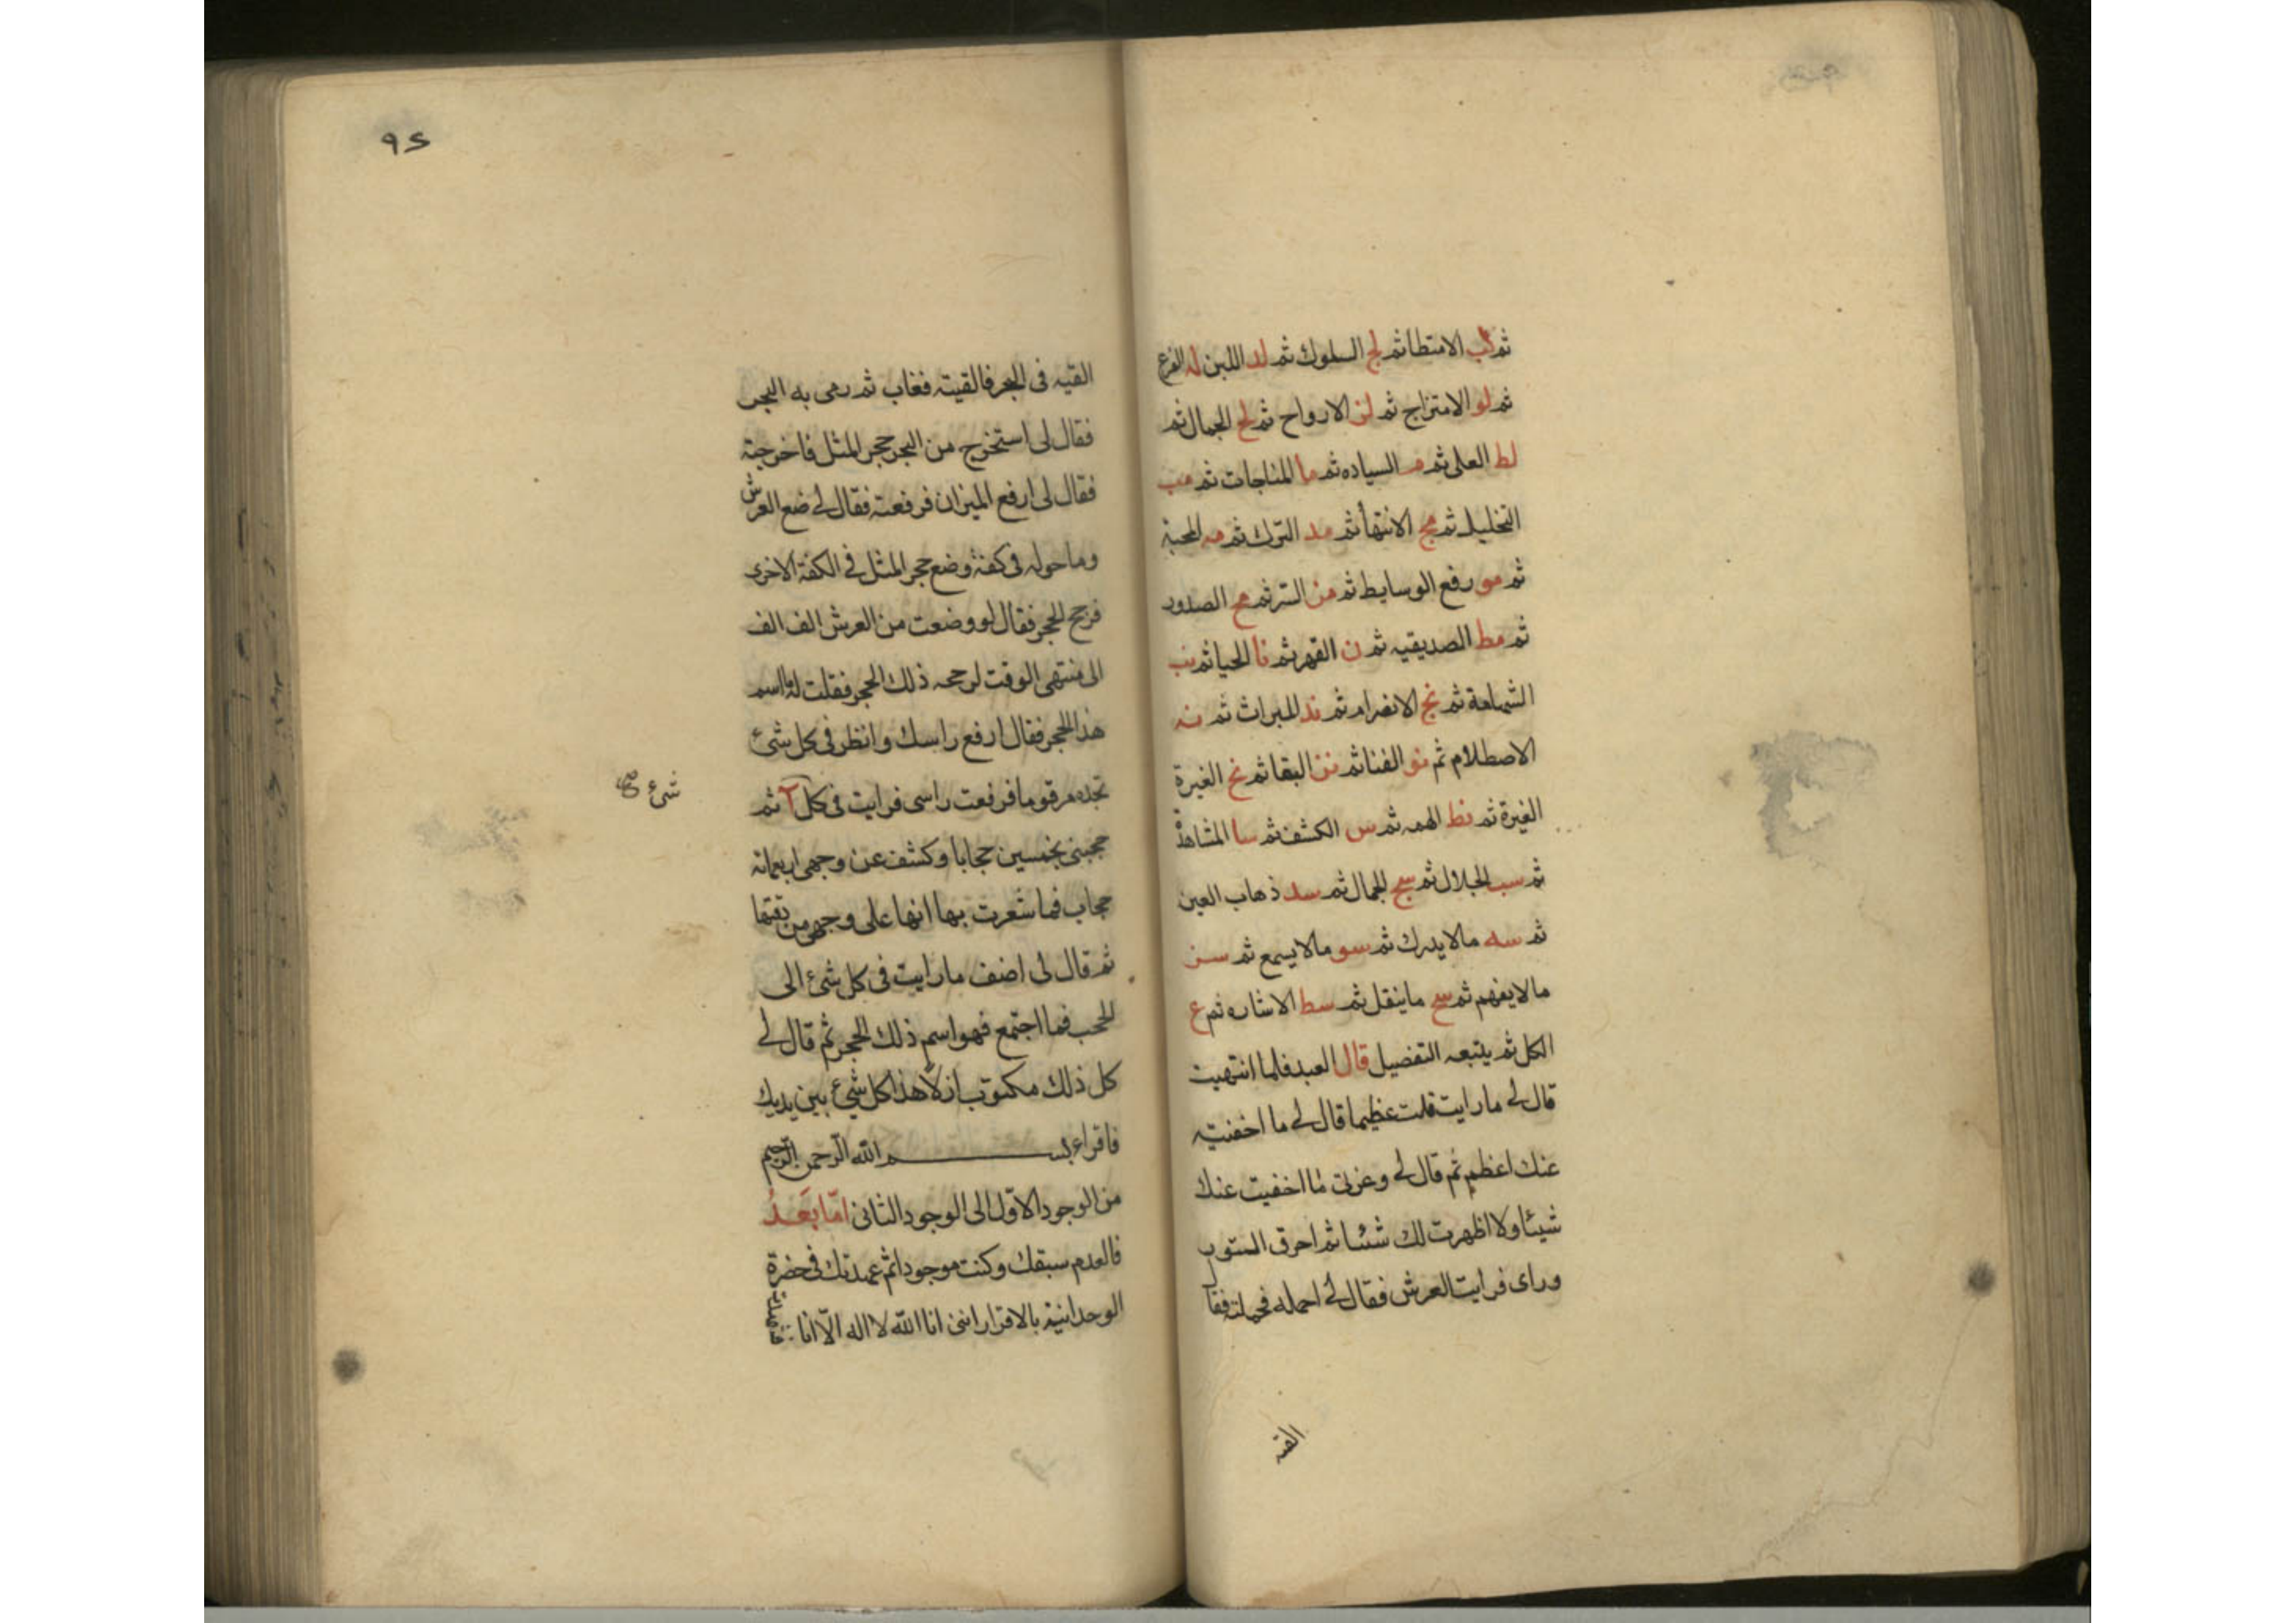 ثم لب الامتطا ثم لج السلوك ثم لد اللبن له الفرع
ثم لو الامتزاج ثم لز الارواح ثم لح الجمال ثم
لط العلى ثم م السياده ثم ما المناجات ثم مب
التخليل ثم مج الانتها ثم مد الترك ثم مه المحبة
ثم مو رفع الوسايط ثم مز السر ثم مح الصدور
ثم مط الصديقيه ثم ن القهر ثم نا الحيا ثم نب
الشهامة ثم نج الانصرام ثم ند الميراث ثم نه
الاصطلام ثم نو الفنا ثم نز البقا ثم نح الغيرة
الغيرة ثم نط الهمه ثم س الكشف ثم سا المشاهدة
ثم سب الجلال ثم سج الجمال ثم سد ذهاب العين
ثم سه مالا يدرك ثم سو مالا يسمع ثم سز
مالا يفهم ثم سح ماينقل ثم سط الاشاره ثم ع
الكل ثم يتبعه التفضيل قال العبد فلما انتهيت
قال لي ما رايت قلت عظيما قال لي ما اخفيته
عنك اعظم ثم قال لي وعزتي ما اخفيت عنك
شيئا ولا اظهرت لك شيئا ثم احرق الستور
وراى فرايت العرش فقال لي احمله فحملته فقال
القيه
٩٤
القيه في البحر فالقيته فغاب ثم رمى به البحر
فقال لي استخرج من البحر حجر المثل فاخرجته
فقال لي ارفع الميزان فرفعته فقال لي ضع العرش
وما حوله في كفة وضع حجر المثل في الكفة الاخرى
فرجح الحجر فقال لو وضعت من العرش الف الف
الى منتهى الوقت لرجحه ذلك الحجر فقلت له ما اسم
هذا الحجر فقال ارفع راسك وانظر في كل شئ
تجده مرقوما فرفعت راسي فرايت في كل آ ثم
شئ صح
حجبني بخمسين حجابا وكشف عن وجهى اربعمائة
حجاب فما شعرت بها انها على وجهى من رقتها
ثم قال لى اضف ما رايت في كل شئ الى
الحجب فما اجتمع فهو اسم ذلك الحجر ثم قال لي
كل ذلك مكتوب ازلا هذا كل شئ بين يديك
فاقراء بسم الله الرحمن الرحيم
من الوجود الاول الى الوجود الثانى اما بعد
فالعدم سبقك وكنت موجودا ثم عهدتك في حضرة
الوحدانية بالاقرار انني انا الله لا اله الا انا